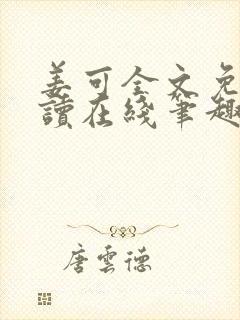 姜可全文免
讀在綫筆趣
唐雲德